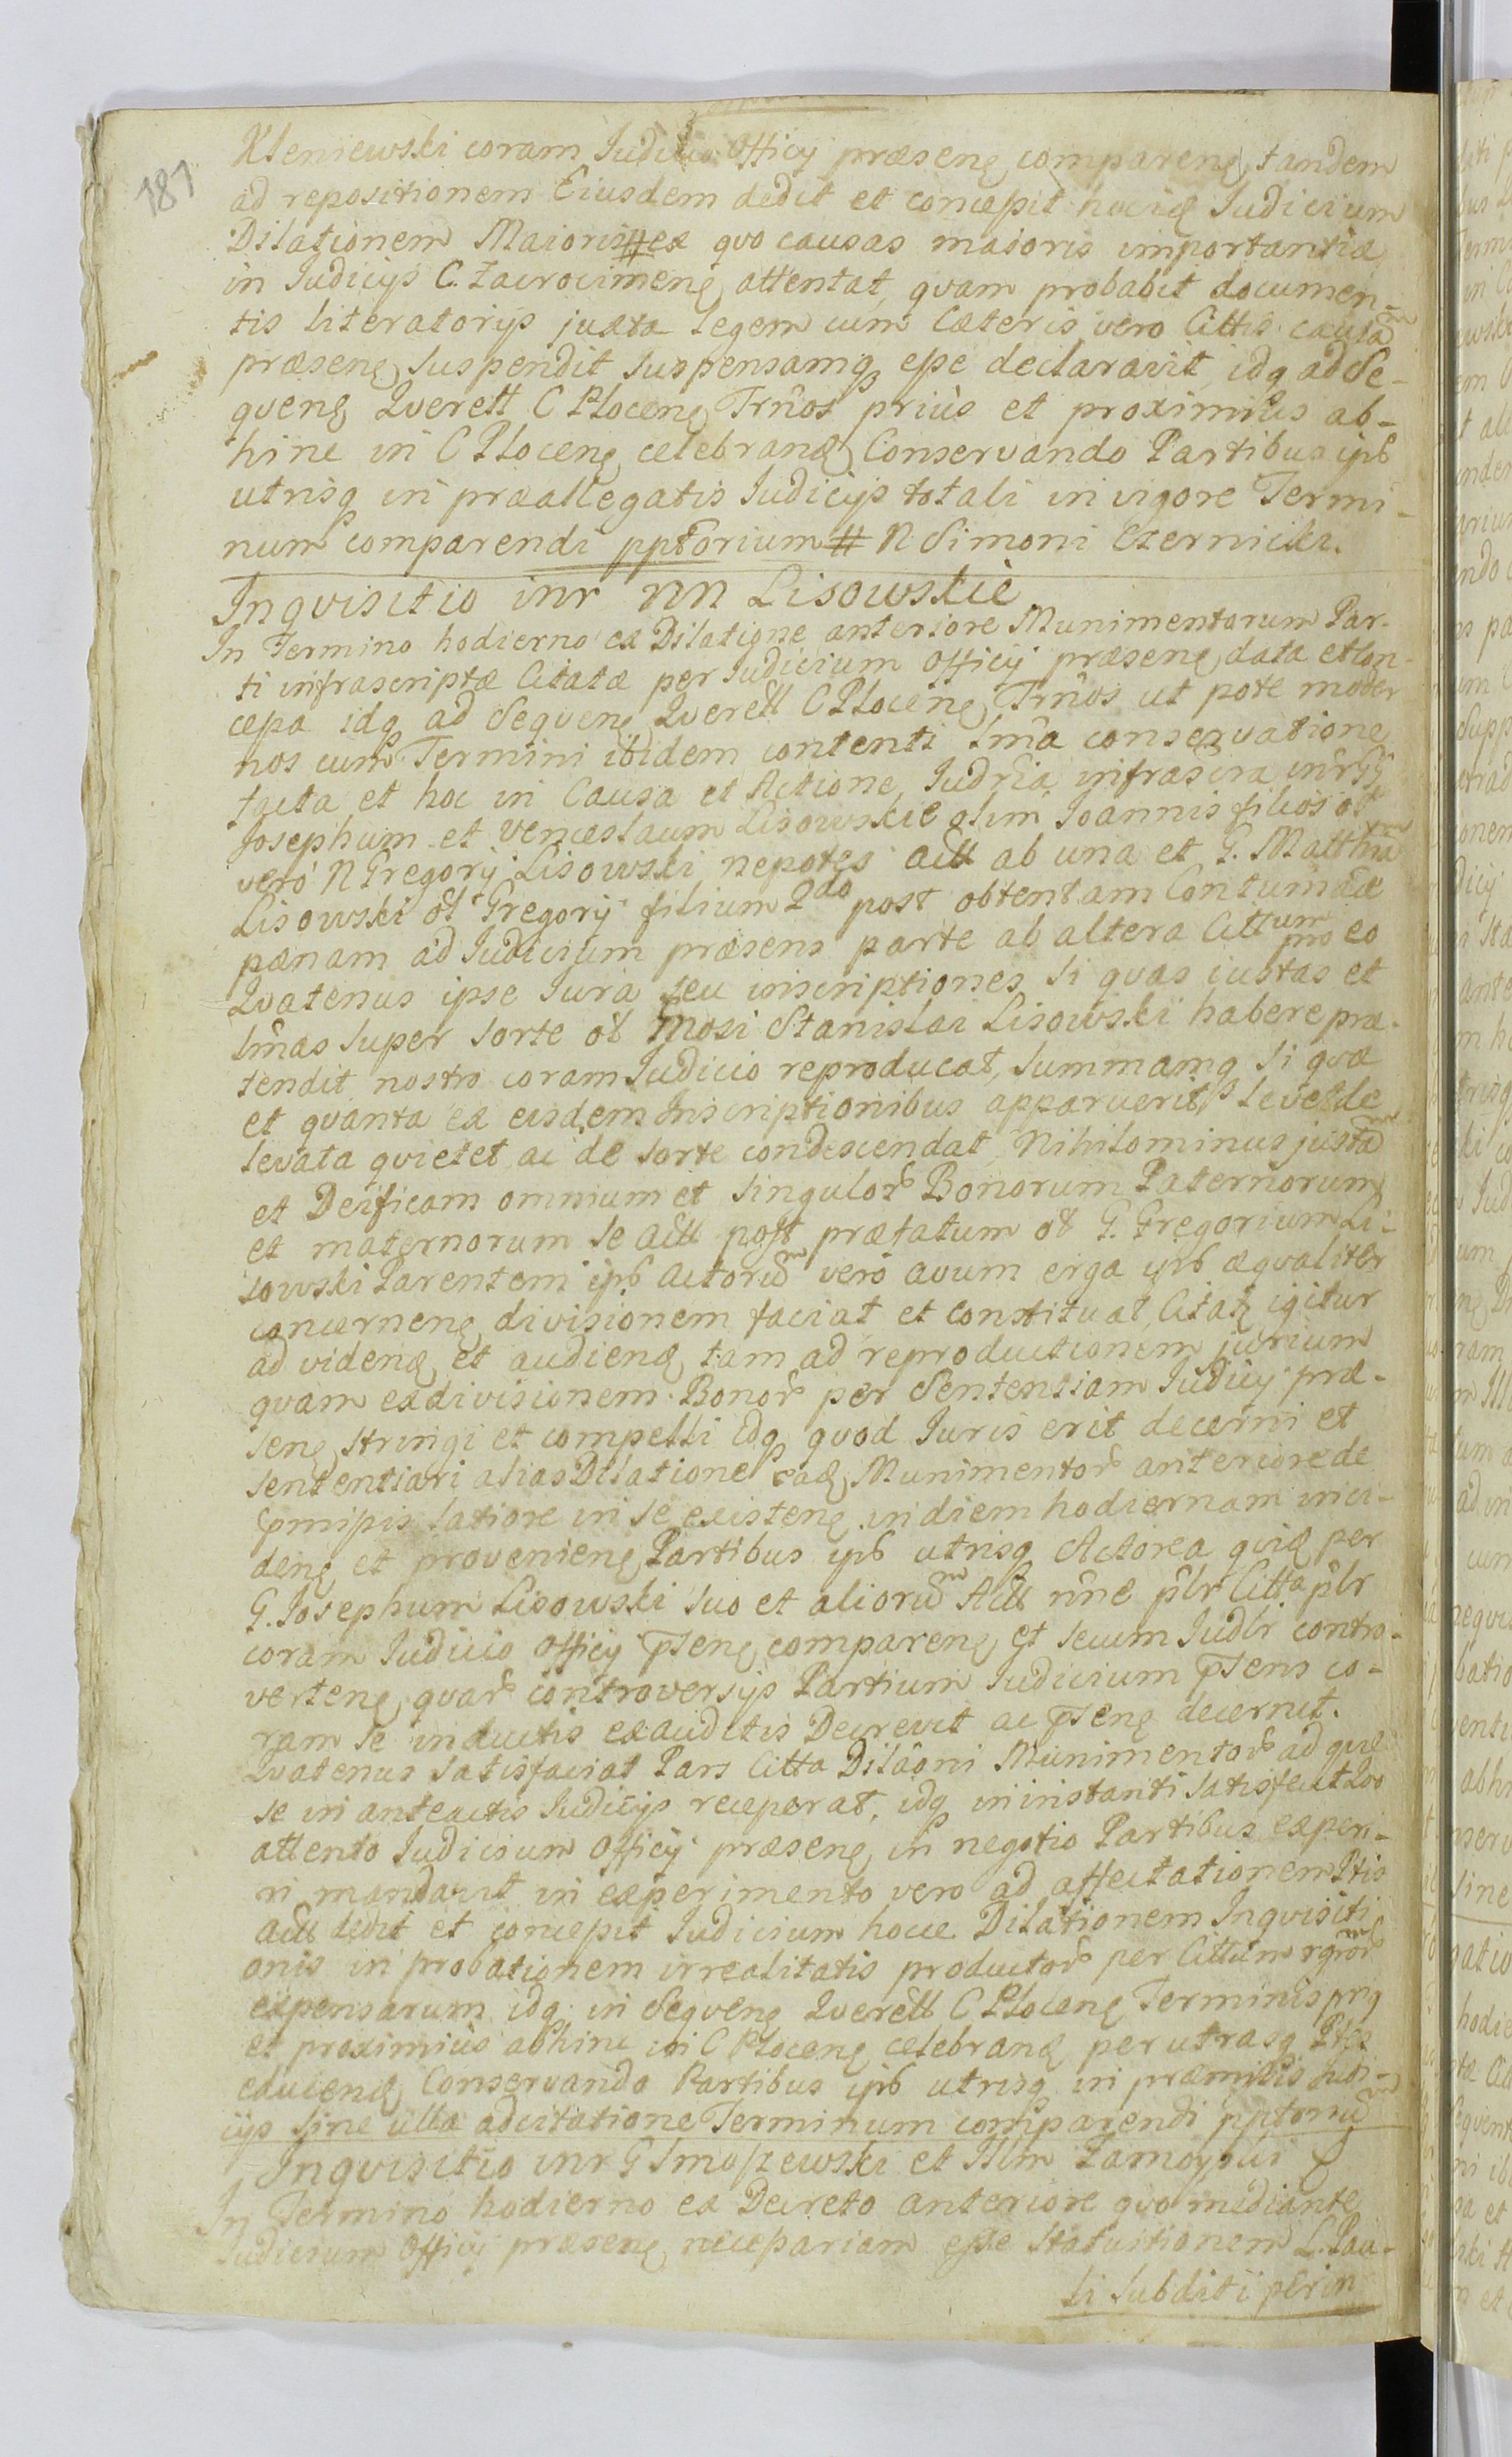 181
Kleniewski coram Judicio Officij præsenꝫ comparenꝫ, tandem
ad repositionem Eiusdem dedit et concepit hocce Judicium
Dilationem Maioris # ex quo causas maioris importantiæ
in Judicijs C. attentat, quam probabit documen-
tis literatorijs juxta legem cum Cæteris vero Cittis causam
præsenꝫ suspendit suspensamqꝫ esse declaravit, idqꝫ ad Se-
quenꝫ Querell C Plocenꝫ Trnos prius et proximius ab-
hinc in C Plocenꝫ celebranꝫ Conservando Partibus ipß
utrisqꝫ in præallegatis Judicijs totali in vigore Termi-
num comparendi pptorium # N Simoni Czernicki.
Inquisitio inr NN Lisowskie
In Termino hodierno ex Dilatione anteriore Munimentorum Par-
ti infrascriptæ Citatæ per Judicium Officij præsenꝫ data et con-
cepa idqꝫ ad Sequenꝫ Querell C Plocenꝫ Trnos ut pote moder
nos cum Termini ibidem contenti lma conservatione
facta et hoc in Causa et Actione infrascra inr GG
Josephum et Venceslaum Lisowskie olim Joannis filios ol
vero N Gregorij Lisowski nepotes Act ab una et G. Matthiam
Lisowski ol Gregorij filium 2do post obtentam Contumaciæ
pænam ad Judicium præsens parte ab altera Cittum pro eo
Quatenus ipse Jura seu inscriptiones si quas iustas et
lmas super sorte ol Gnosi Stanislai Lisowski habere præ-
tendit nostro coram Judicio reproducat, Summamqꝫ si quæ
et quanta ex eisdem Inscriptionibus apparuerit, levet de
levata quietet ac de sorte condescendat, Nihilominus justam
et Deificam omnium et singulor Bonorum Paternorum
et maternorum se Act post præfatum ol G. Gregorium Li-
sowski Parentem ipß Actorum vero avum erga ipß æqualiter
concernenꝫ divisionem faciat et constituat, Citatꝫ igitur
ad videnꝫ et audienꝫ tam ad reproductionem jurium
quam exdivisionem Bonor per Sententiam Judicij præ-
senꝫ stringi et compelli idqꝫ quod Juris erit decerni et
sententiari alias Dilatione eadꝫ Munimentor anteriore de
præmissis latiore in se existenꝫ in diem hodiernam inci-
denꝫ et provenienꝫ Partibus ipß utrisqꝫ Actorea quidꝫ per
G. Josephum Lisowski suo et aliorum Act nne plr Citta plr
coram Judicio Officij psenꝫ comparenꝫ et secum Judlr contro-
vertenꝫ quar controversijs Partium Judicium psens co-
ram se inductis exauditis Decrevit ac psenꝫ decernit.
Quatenus satisfaciat Pars Citta Dilaoni Munimentor ad quæ
se in anteactis Judicijs receperat, idqꝫ in instanti satisfecit Quo
attento Judicium Officij præsenꝫ in negotio Partibus experi-
ri mandavit in experimento vero ad affectationem Ptis
Act dedit et concepit Judicium hocce Dilationem Inquisiti
onis in probationem irrealitatis productor per Cittum rgror
expensarum idqꝫ in Sequenꝫ Querell C Plocenꝫ Terminis priꝫ
et proximius abhinc in C Plocenꝫ celebranꝫ per utrasqꝫ Ptes
educenꝫ Conservando Partibus ipß utrisqꝫ in præmissis Judi-
cijs sine ulla adcitatione Terminum comparendi pptorium
Inquisitio inr G Smoszewski et Illm Zamoyski
In Termino hodierno ex Decreto anteriore quo mediante
Judicium Officij præsenꝫ necessariam esse Statuitionem L. Pau-
li Subditi per in